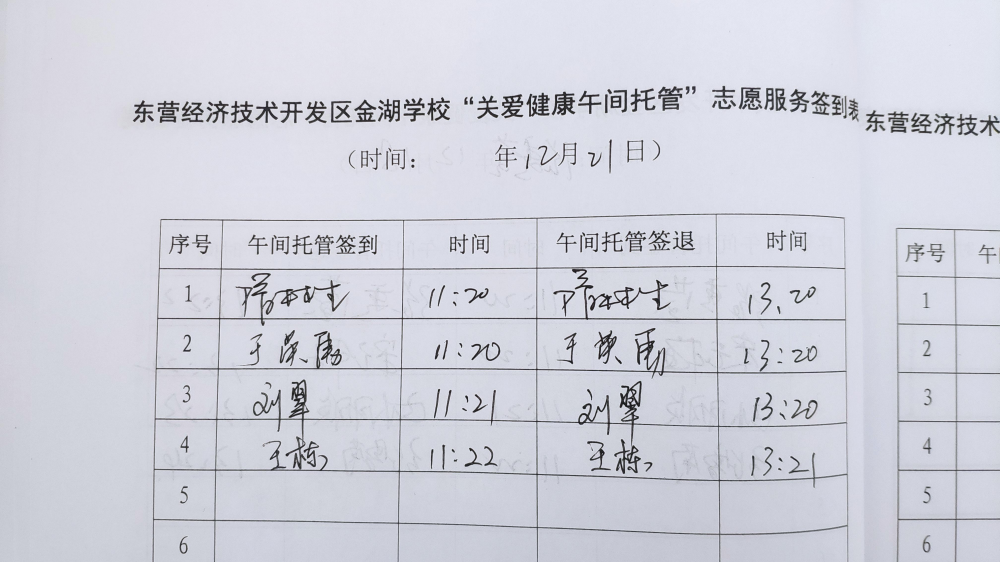 东营经济技术开发区金湖学校“关爱健康午间托管”志愿服务签到表
（时间： 年12月21日）
序号 午间托管签到 时间 午间托管签退 时间
1 11:20 13.20
2 于英勇 11:20 于英勇 13:20
3 刘翠 11:21 刘翠 13:20
4 王栋 11:22 王栋 13:21
5
6
东营经济技术
序号 午间
1
2
3
4
5
6